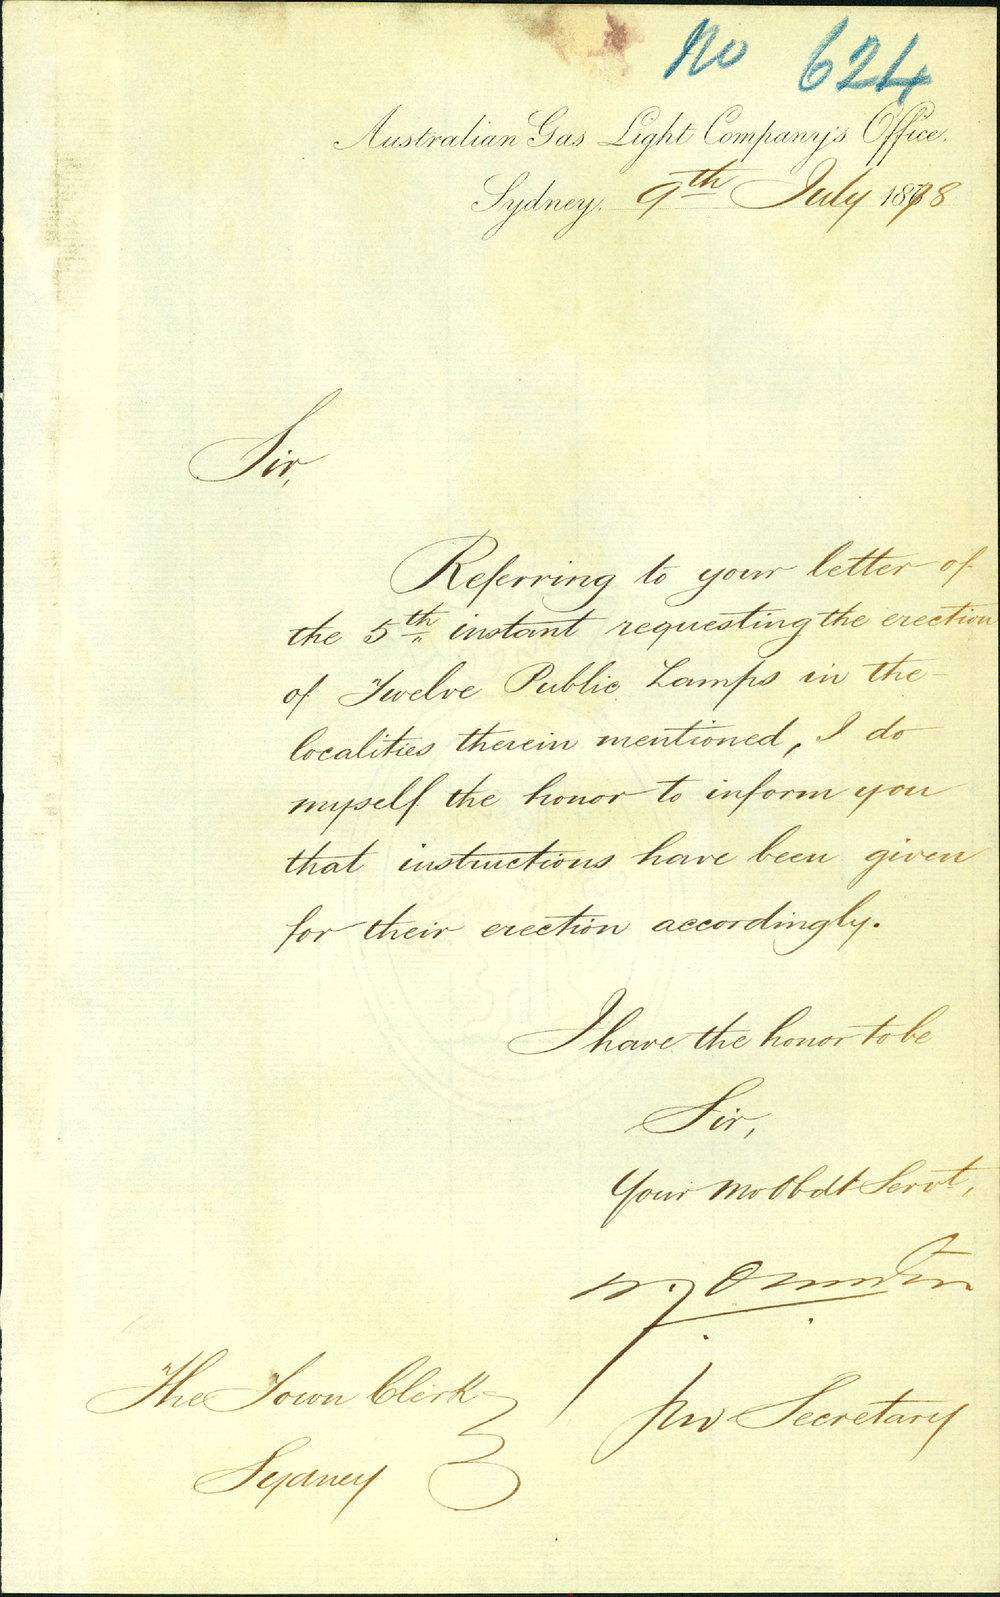 No 624
Australian Gas Light Company's Office.
Sydney. 9th July 1878
Sir,
Referring to your letter of
the 5th instant requesting the erection
of Twelve Public Lamps in the
localities therein mentioned, I do
myself the honor to inform you
that instructions have been given
for their erection accordingly.
I have the honor to be
Sir,
Your Mo Obdt Servt,
Pro Secretary
The Town Clerk
Sydney